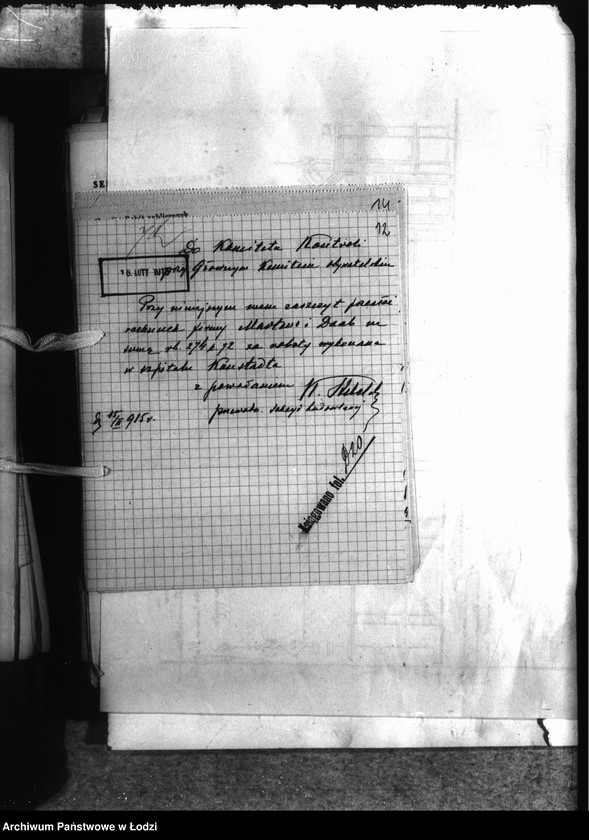 14
12
SE
Do Komitetu Kontroli
przy Głównym Komitecie Obywatelskim
16. LUTY 1915
Przy niniejszym mam zaszczyt przesłać
rachunek firmy Martens i Daab na
sumę rb. 274 k. 72 za roboty wykonane
w szpitalu Konstadta
z poważaniem
przewodn. sekcyi budowlanej
15/II 915 r.
Księgowano fol. 920
Archiwum Państwowe w Łodzi